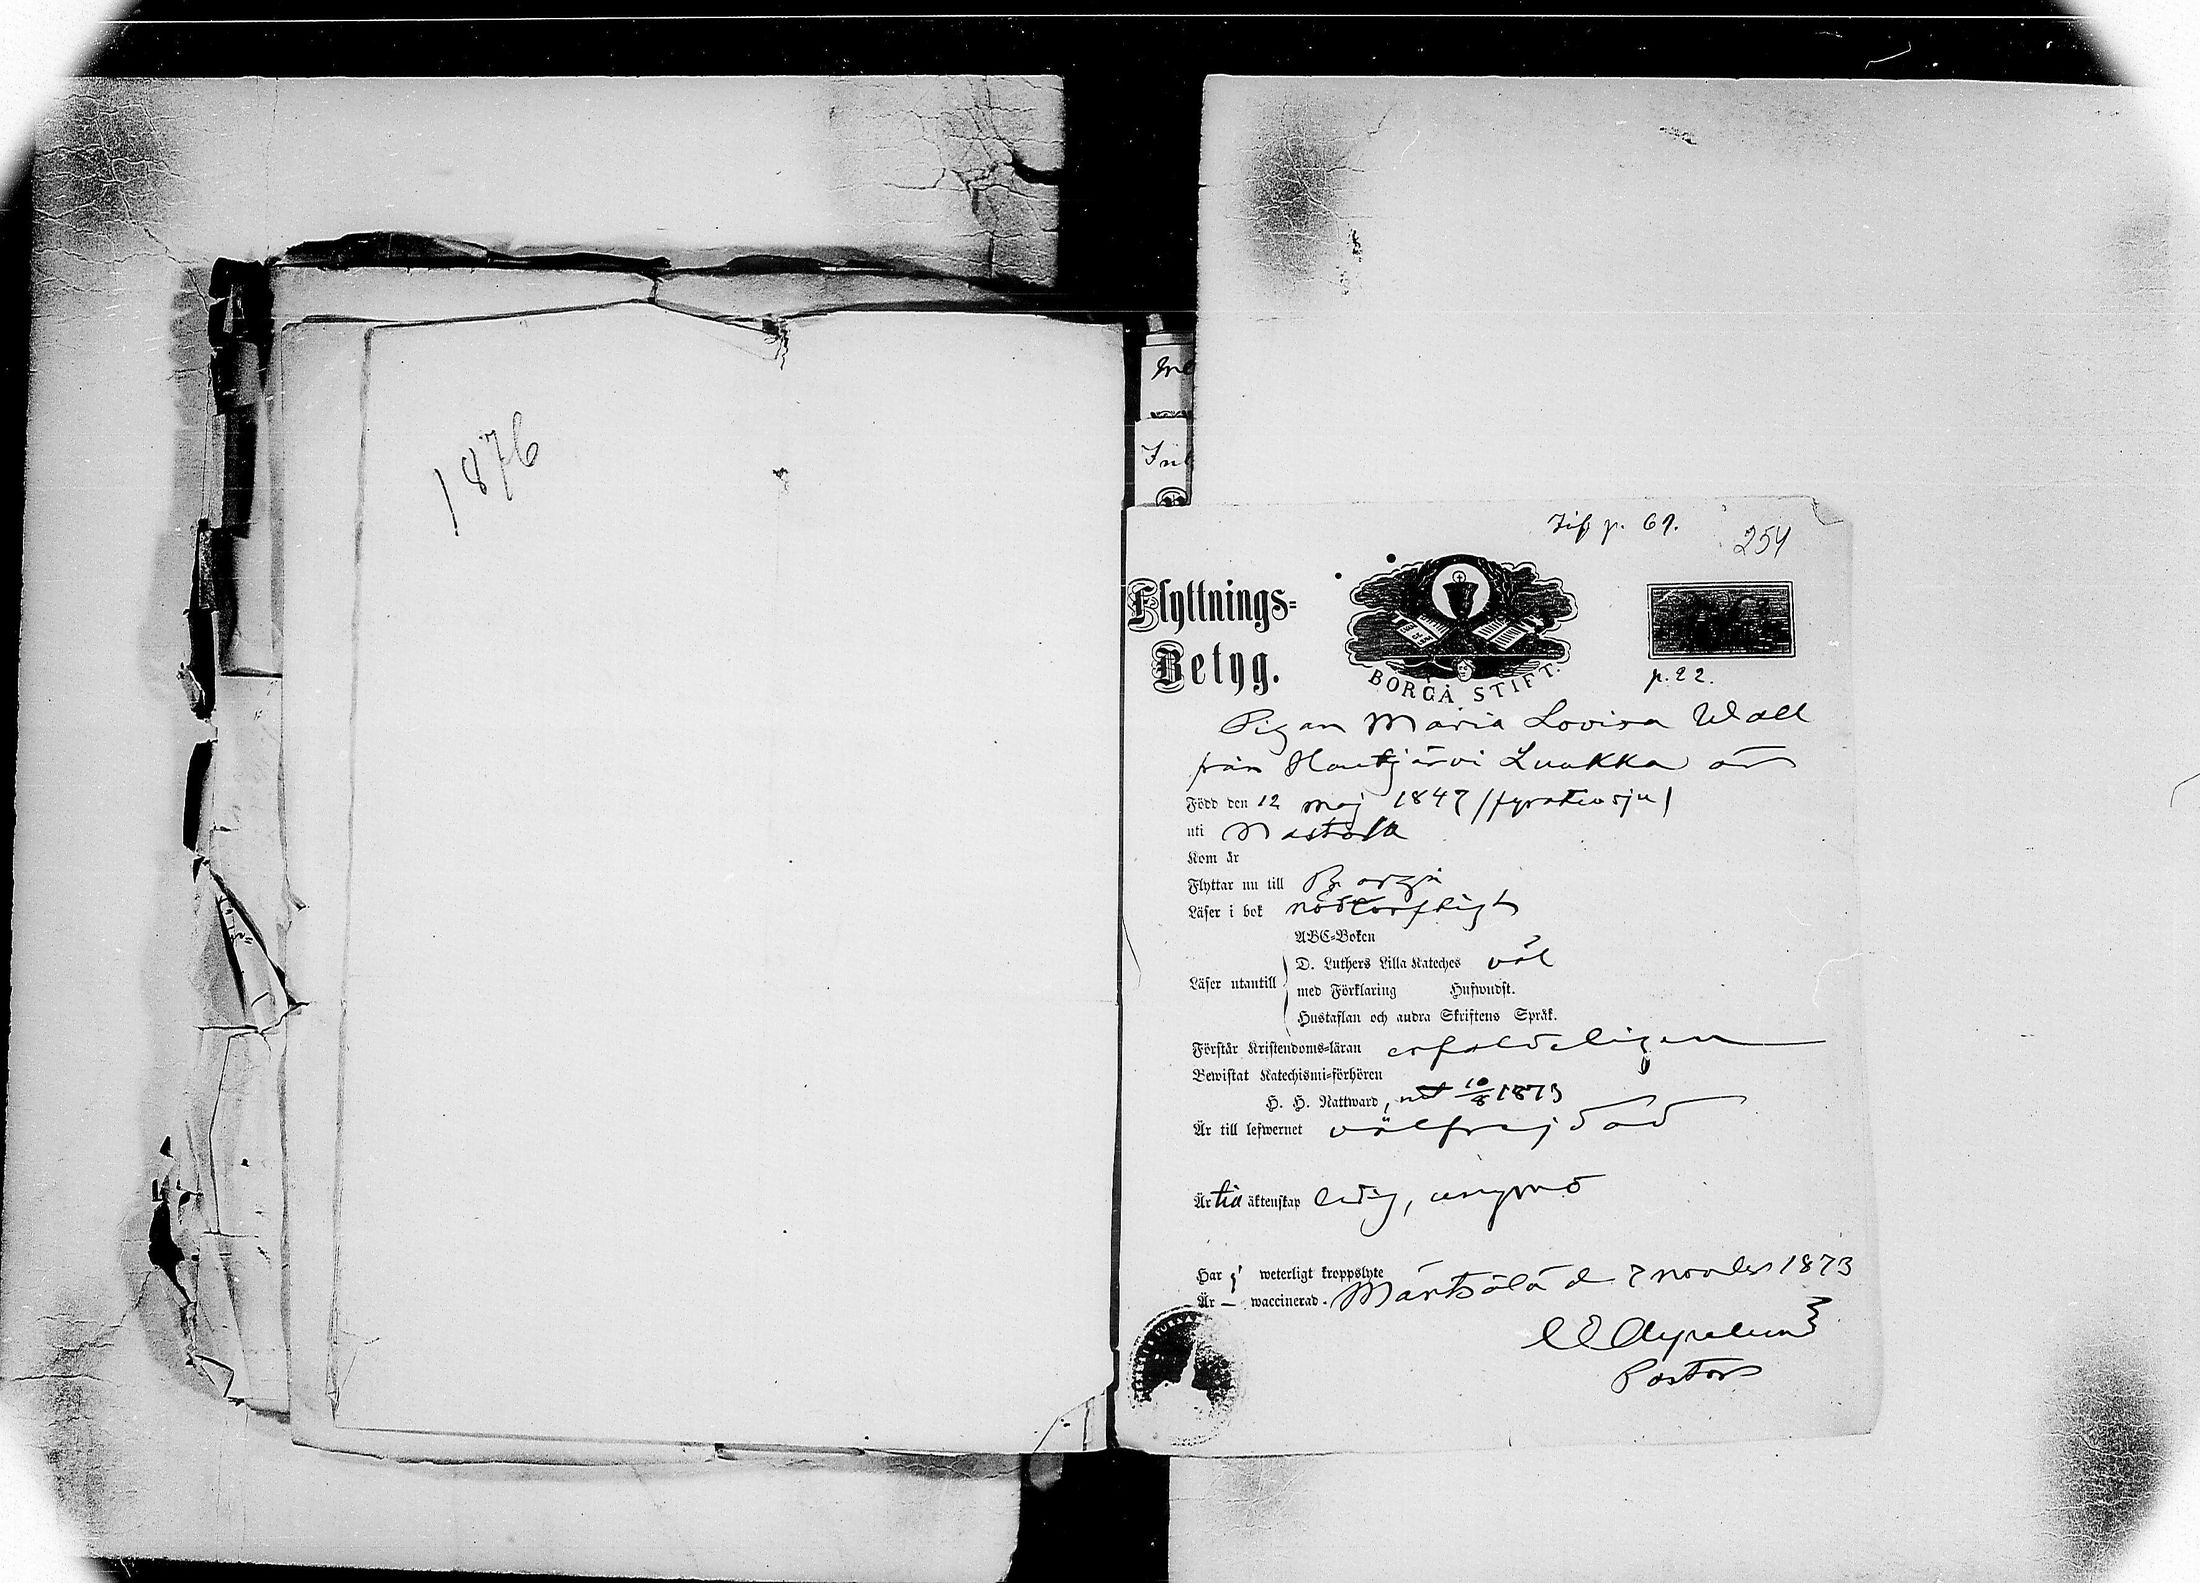 1876
p. 61.
254
Flyttnings=
Betyg.
BORGÅ STIFT.
p. 22.
Pigan Maria Lovisa Wall
från Hautjärvi Luukka är
Född den 12 maj 1847 /fyratiosju/
uti Nastola
Kom år
Flyttar nu till Borgå
Läser i bok nödtorftigt
ABC=Boken
D. Luthers Lilla Kateches väl
Läser utantill
med Förklaring Hufwudst.
Hustaflan och andra Skriftens Språk.
Förstår Kristendoms=läran erfoldeligen
Bewistat Katechismi=förhören
H. H. Nattward, 10/8 1873
Är till lefwernet välfrejdad
Är till äktenskap ledig, ungmö
Har ej weterligt kroppslyte
Är — waccinerad. Mäntsälä d 7 november 1873
Pastor